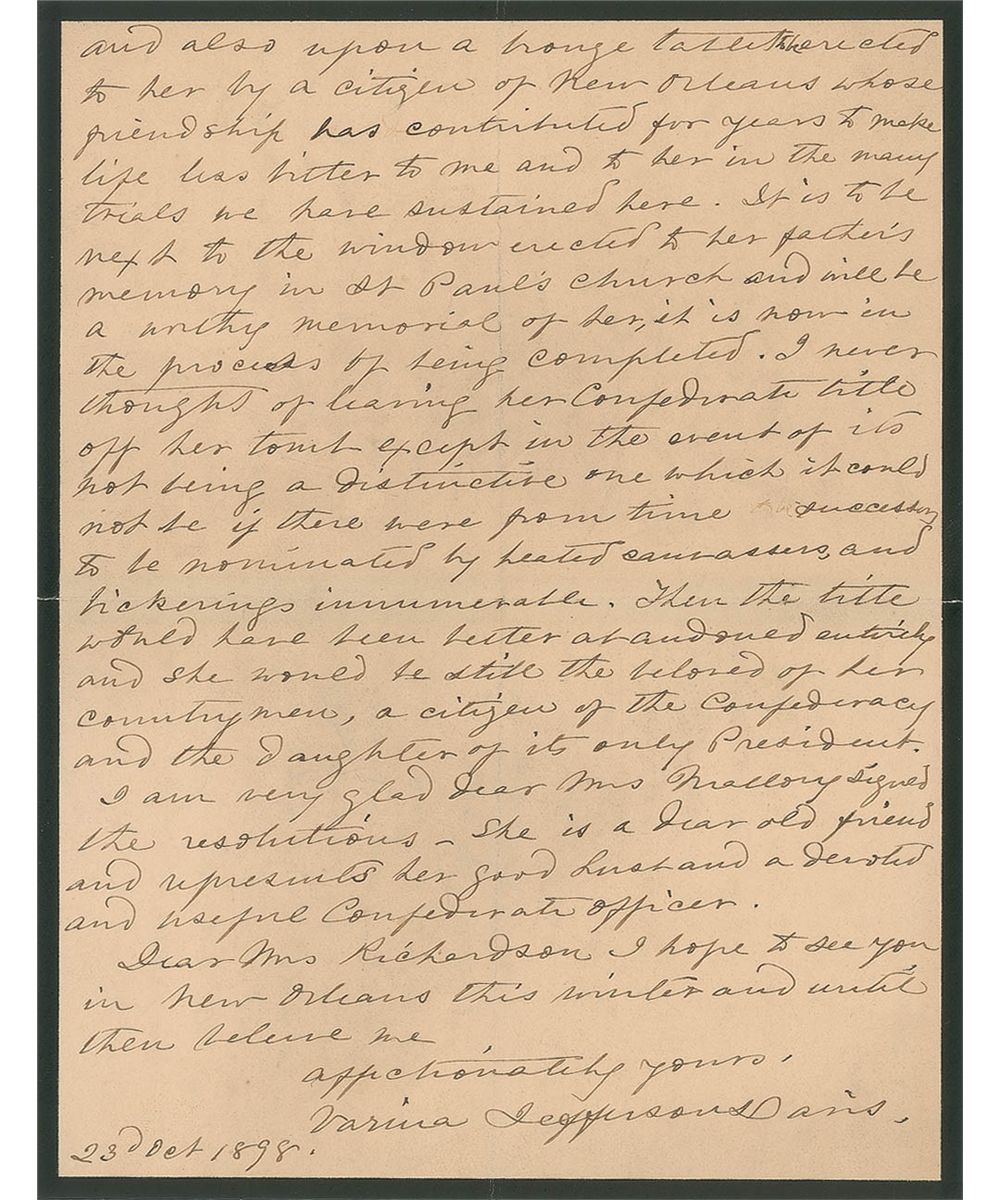 and also upon a bronze tablet to be erected
to her by a citizen of New Orleans whose
friendship has contributed for years to make
life less bitter to me and to her in the many
trials we have sustained here. It is to be
next to the window erected to her father's
memory in St Paul's church and will be
a worthy memorial of her, it is now in
the process of being completed. I never
thought of leaving her Confederate title
off her tomb except in the event of its
not being a distinctive one which it could
not be if there were from time successors
to be nominated by heated canvassers, and
bickerings innumerable. Then the title
would have been better abandoned entirely
and she would be still the beloved of her
countrymen, a citizen of the Confederacy
and the daughter of its only President.
I am very glad dear Mrs Mallory signed
the resolutions - She is a dear old friend
and represents her good husband a devoted
and useful Confederate officer.
Dear Mrs Richardson I hope to see you
in New Orleans this winter and until
then believe me
affectionately yours,
Varina Jefferson Davis,
23d Oct 1898.